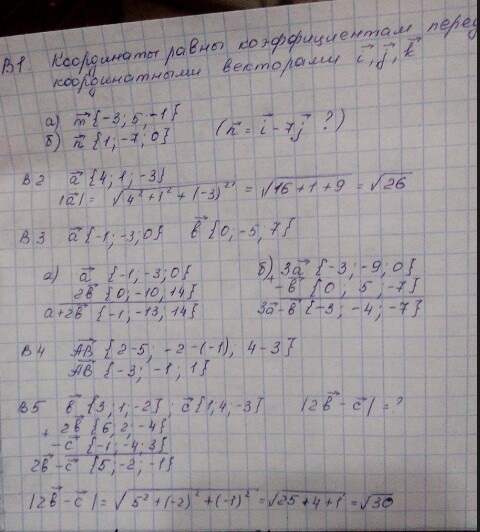 В1 Координаты равны коэффициентам перед
координатными векторами i⃗, j⃗, k⃗
а) m⃗ {-3; 5; -1}
б) n⃗ {1; -7; 0} (n⃗ = i⃗ - 7j⃗ ?)
В2 a⃗ {4; 1; -3}
|a⃗| = √(4² + 1² + (-3)²) = √(16 + 1 + 9) = √26
В3 a⃗ {-1; -3; 0} b⃗ {0; -5; 7}
а) a⃗ {-1; -3; 0} б) 3a⃗ {-3; -9; 0}
2b⃗ {0; -10; 14} -b⃗ {0; 5; -7}
a+2b⃗ {-1; -13; 14} 3a⃗-b⃗ {-3; -4; -7}
В4 AB⃗ {2-5; -2-(-1), 4-3}
AB⃗ {-3; -1; 1}
В5 b⃗ {3, 1, -2}; c⃗ {1, 4, -3} |2b⃗ - c⃗| = ?
+ 2b⃗ {6; 2; -4}
-c⃗ {-1; -4; 3}
2b⃗ - c⃗ {5; -2; -1}
|2b⃗ - c⃗| = √(5² + (-2)² + (-1)²) = √(25 + 4 + 1) = √30